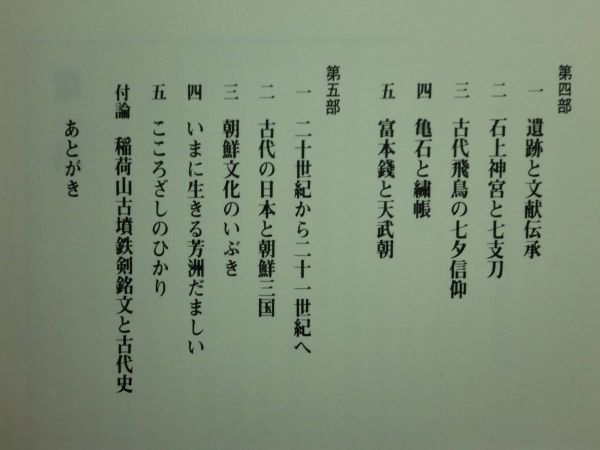 第四部
一 遺跡と文献伝承
二 石上神宮と七支刀
三 古代飛鳥の七夕信仰
四 亀石と繍帳
五 富本銭と天武朝
第五部
一 二十世紀から二十一世紀へ
二 古代の日本と朝鮮三国
三 朝鮮文化のいぶき
四 いまに生きる芳洲だましい
五 こころざしのひかり
付論 稲荷山古墳鉄剣銘文と古代史
あとがき